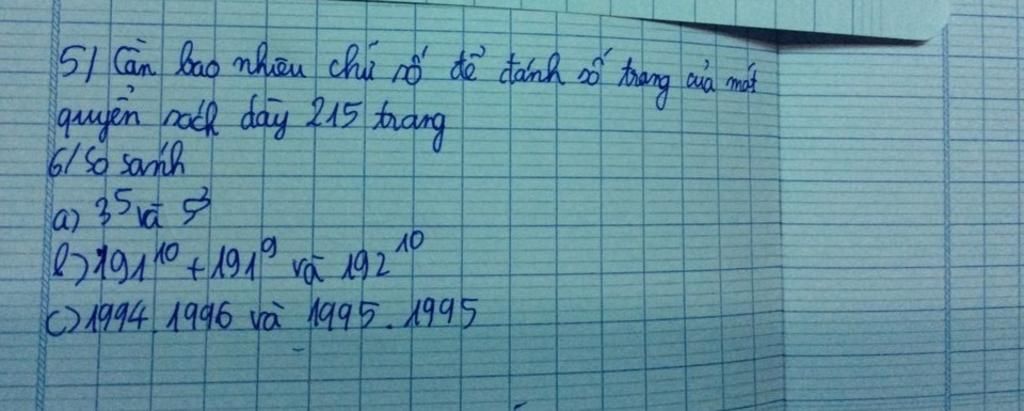 5/ Cần bao nhiêu chữ số để đánh số trang của một
quyển sách dày 215 trang
6/ So sánh
a) 3⁵ và 5³
b) 191¹⁰ + 191⁹ và 192¹⁰
c) 1994 . 1996 và 1995 . 1995